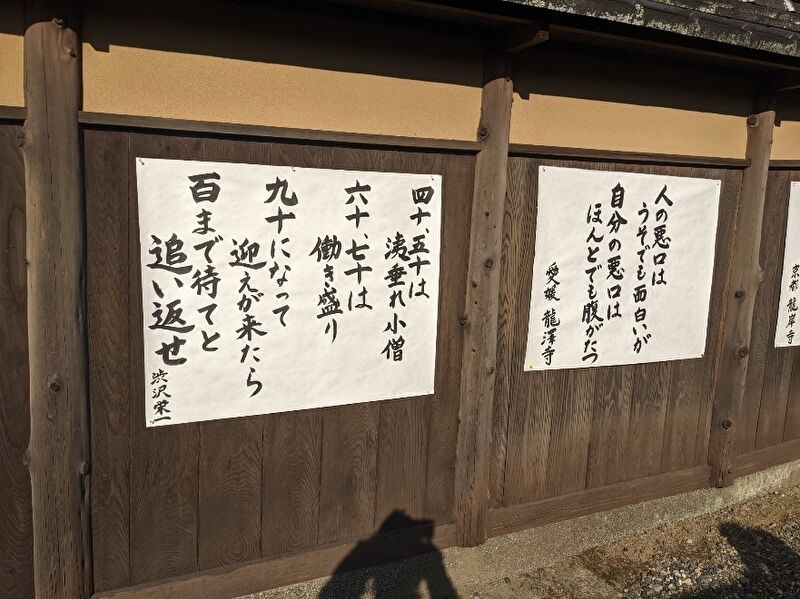 四十、五十は
洟垂れ小僧
六十、七十は
働き盛り
九十になって
迎えが来たら
百まで待てと
追い返せ
渋沢栄一
人の悪口は
うそでも面白いが
自分の悪口は
ほんとでも腹がたつ
愛媛 龍澤寺
京都 龍岸寺